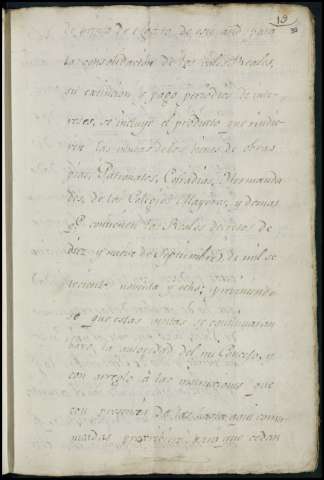 19
de enero de este año, para
la consolidacion de los vales Reales,
su extincion y pago periodico de inte-
reses, se incluye el producto que rindie-
ren las ventas de los bienes de obras
pias, Patronatos, Cofradias, Hermanda-
des, de los Colegios Mayores, y demas
qe contienen los Reales decretos de
diez y nueve de Septiembre de mil se-
tecientos noventa y ocho; previniendo-
se que estas ventas se continuaran
baxo la autoridad del mi Consejo, y
con arreglo á las instrucciones que
con presencia de las hasta aqui comu-
nicadas prescribe, para que cedan